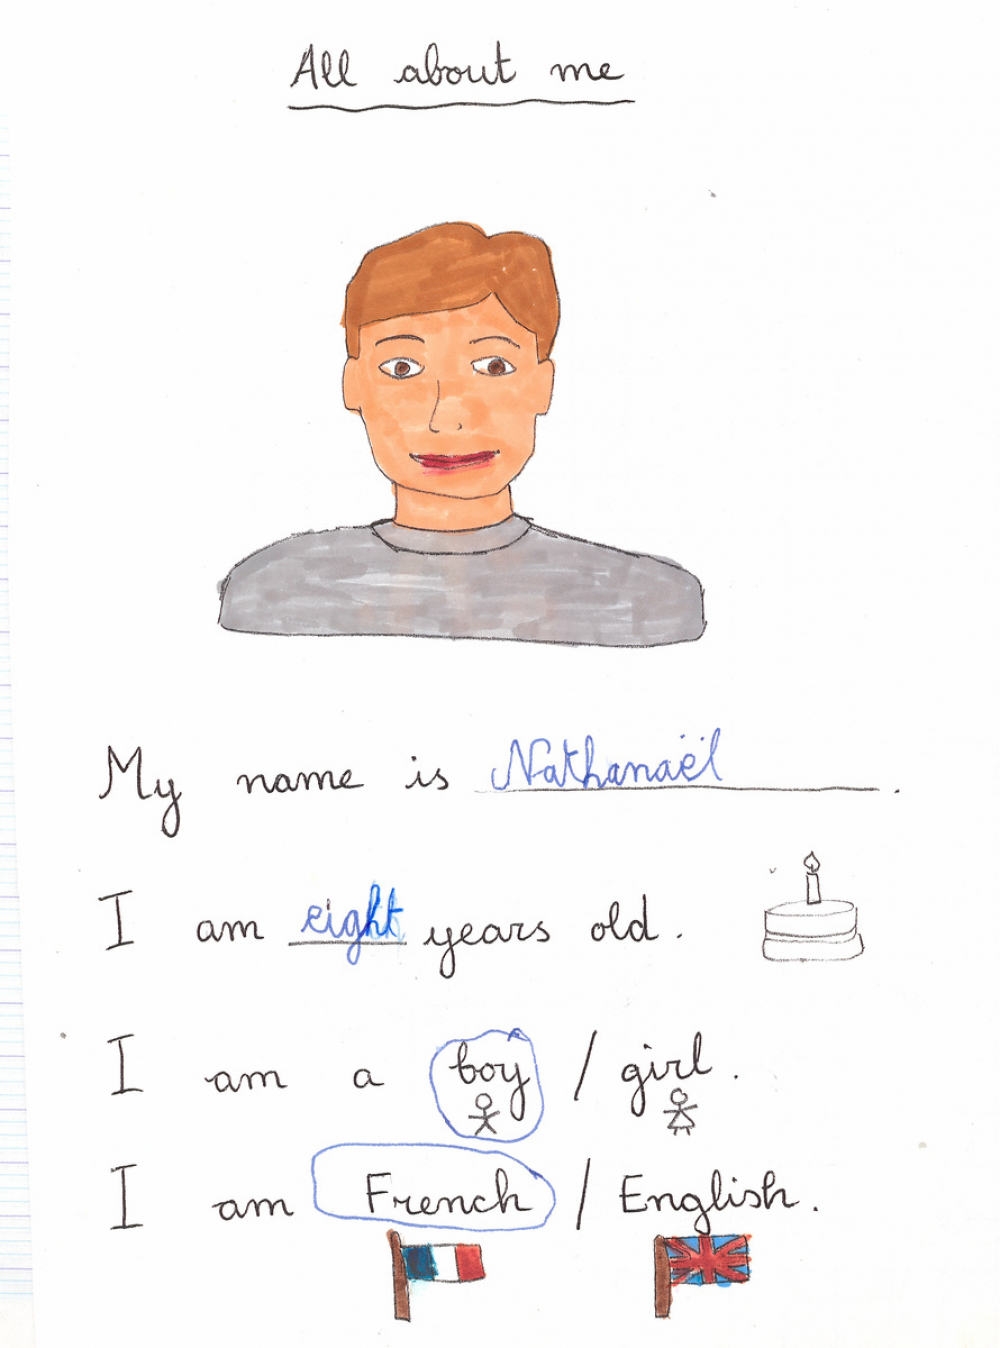 All about me
My name is Nathanaël.
I am eight years old.
I am a boy / girl.
I am French / English.